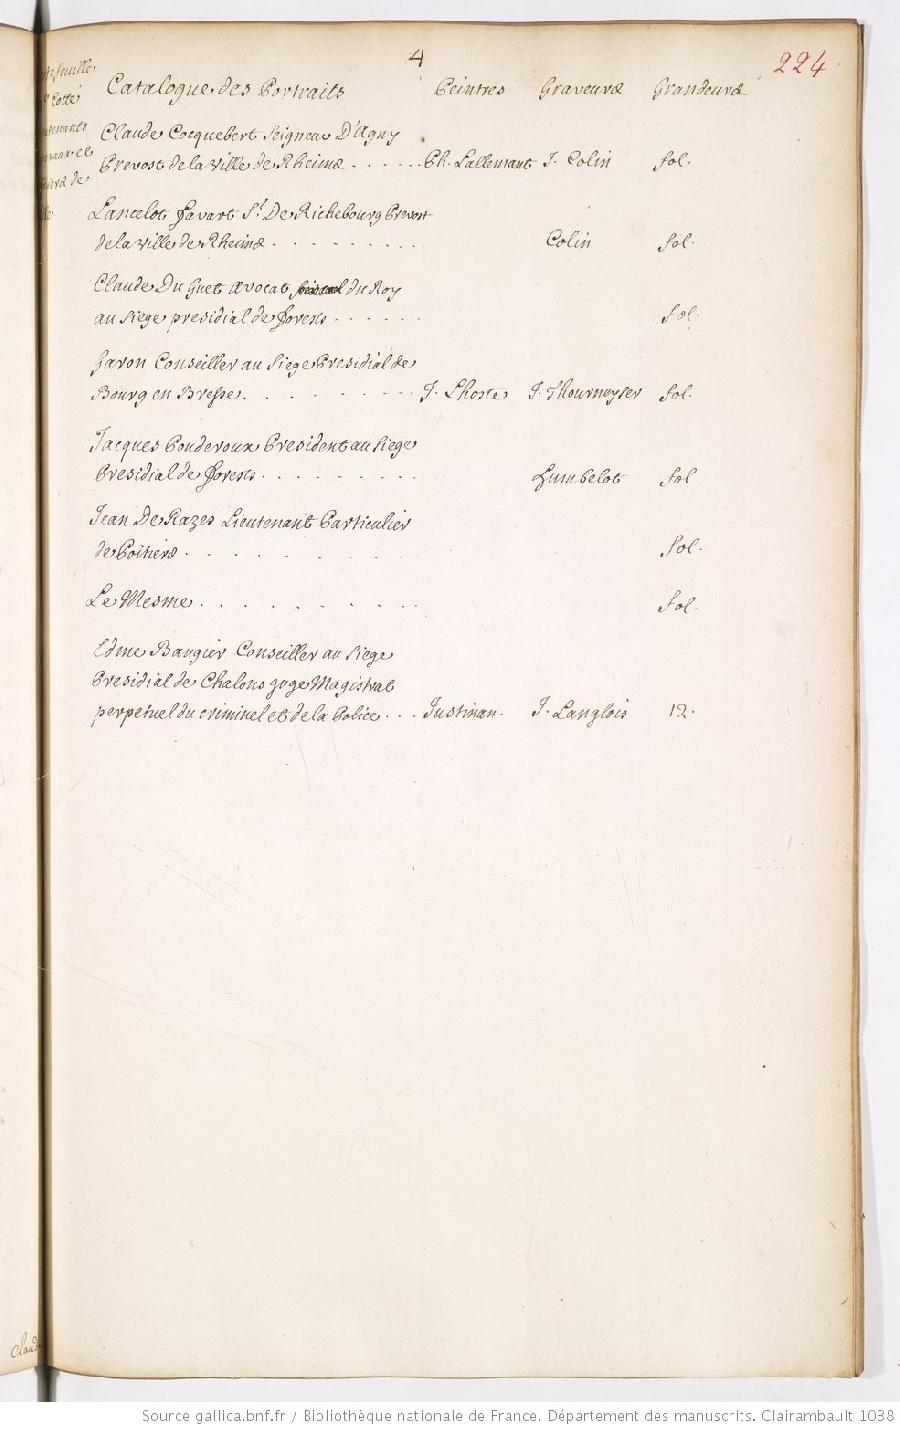 4
224
Catalogue des Portraits Peintres Graveurs Grandeurs
Claude Cocquebert Seigneur D'Agny
Prevost de la ville de Rheims . . . . . Ph. Lallemant J. Colin fol.
Lancelot Favart Sr. De Richebourg Prevost
de la ville de Rheims . . . . . . . . Colin fol.
Claude Du Guet avocat du Roy
au siege presidial de Forests . . . . . . fol.
Garon Conseiller au siege Presidial de
Bourg en Bresse . . . . . . . . J. Lhoste J. Thourneyser fol.
Jacques Ponderoux President au siege
Presidial de Forests . . . . . . . . . fol
Jean De Razes Lieutenant Particulier
de Poitiers . . . . . . . fol.
Le Mesme . . . . . . . . . . fol.
Edme Banguir Conseiller au siege
Presidial de Chalons juge Magistrat
perpetuel du criminel et de la Police . . . Justinan. J. Langlois 12.
Claud
Source gallica.bnf.fr / Bibliothèque nationale de France. Département des manuscrits. Clairambault 1038